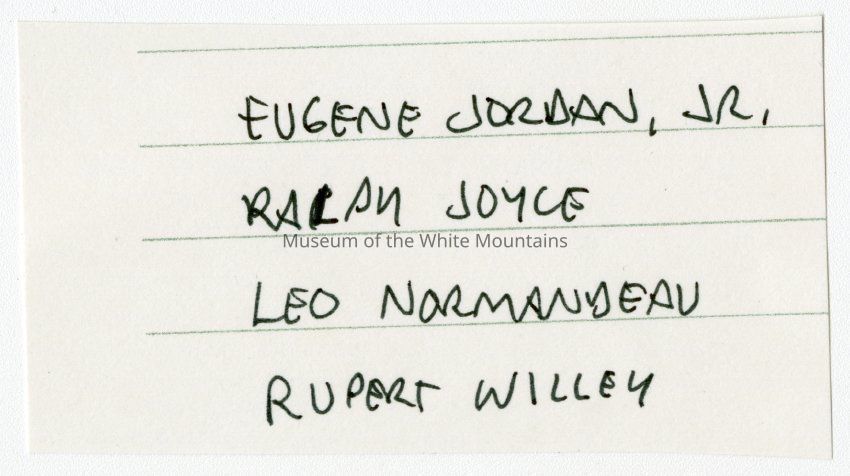 EUGENE JORDAN, JR.
RALPH JOYCE
Museum of the White Mountains
LEO NORMANDEAU
RUPERT WILLEY